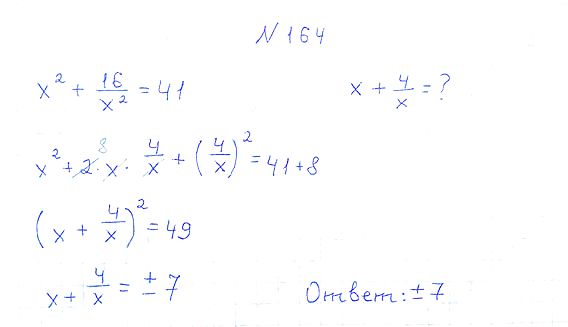 N 164
x² + 16/x² = 41    x + 4/x = ?
x² + 2 · x · 4/x + (4/x)² = 41 + 8
8
(x + 4/x)² = 49
x + 4/x = ± 7    Ответ: ± 7